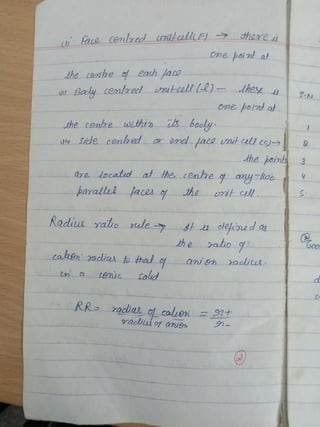 (i) Face centred unit cell (F) → there is
one point at
the centre of each face
(ii) Body centred unit cell (I) — there is
one point at
the centre within its body.
(iii) Side centred or end face unit cell (c) →
the points
are located at the centre of any two
parallel faces of the unit cell.
Radius ratio rule → It is defined as
the ratio of
cation radius to that of anion radius
in a ionic solid
RR = radius of cation / radius of anion = r+ / r-
2
S.N
1
2
3
4
5